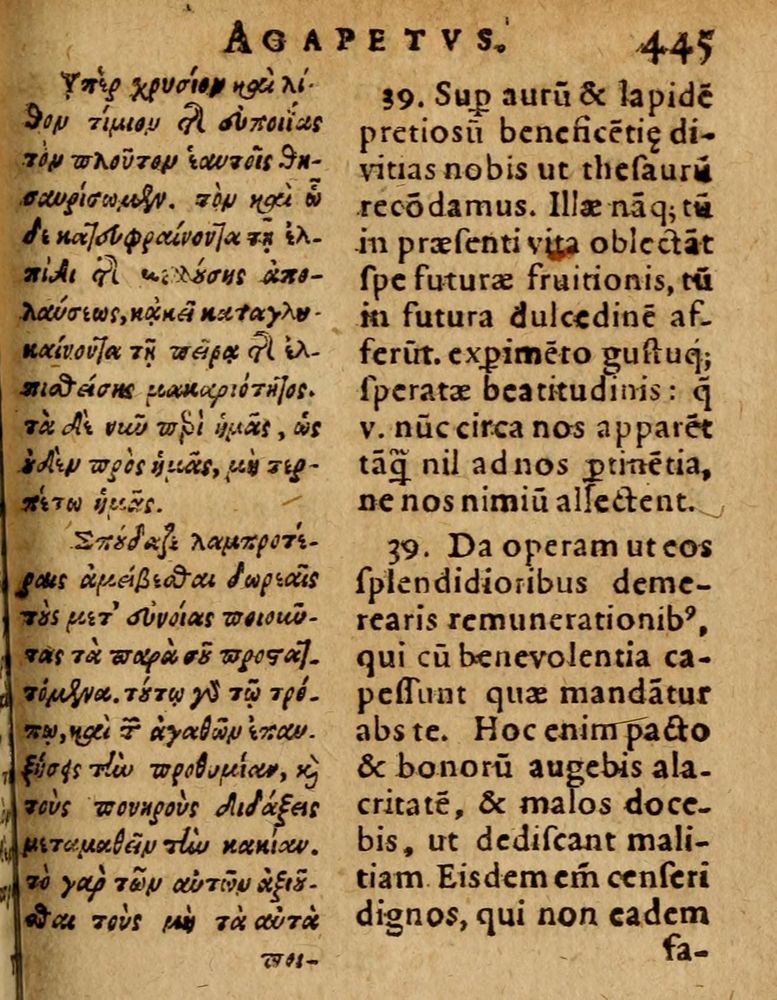 AGAPETVS.
445
Ὑπὲρ χρυσίον καὶ λί-
θον τίμιον τῆς εὐποιίας
τὸν πλοῦτον ἑαυτοῖς θη-
σαυρίσωμεν. τὸν καὶ ὧ
δε κατευφραίνοντα τῇ ἐλ-
πίδι τῆς μελλούσης ἀπο-
λαύσεως, κἀκεῖ καταγλυ-
καίνοντα τῇ πείρᾳ τῆς ἐλ-
πισθείσης μακαριότητος.
τὰ δὲ νῦν περὶ ἡμᾶς, ὡς
οὐδὲν πρὸς ἡμᾶς, μὴ τερ-
πέτω ἡμᾶς.
Σπούδαζε λαμπροτέ-
ραις ἀμείβεσθαι δωρεαῖς
τοὺς μετ' εὐνοίας ποιοῦν-
τας τὰ παρὰ σοῦ προσταττ-
τόμενα. τούτῳ γὰρ τῷ τρό-
πῳ, καὶ τῶν ἀγαθῶν ἐπαυ-
ξήσεις τὴν προθυμίαν, καὶ
τοὺς πονηροὺς διδάξεις
μεταμαθεῖν τὴν κακίαν.
τὸ γὰρ τῶν αὐτῶν ἀξιοῦ-
σθαι τοὺς μὴ τὰ αὐτὰ
ποι-
39. Suꝑ aurū & lapidē
pretiosū beneficētię di-
vitias nobis ut theſaurū
recōdamus. Illæ nāq; tū
in præſenti vita oblectāt
ſpe futuræ fruitionis, tū
in futura dulcedinē af-
ferūt. exꝑimēto guſtuq;
ſperatæ beatitudinis: q̄
v. nūc circa nos apparēt
tāq̄ nil ad nos ꝑtinētia,
ne nos nimiū allectent.
39. Da operam ut eos
ſplendidioribus deme-
rearis remunerationibꝰ,
qui cū benevolentia ca-
peſſunt quæ mandātur
abs te. Hoc enim pacto
& bonorū augebis ala-
critatē, & malos doce-
bis, ut dediſcant mali-
tiam. Eisdem em̄ cenſeri
dignos, qui non eadem
fa-